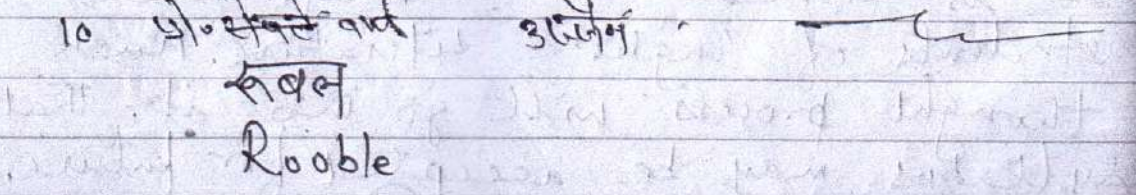 10 प्रो. वर्मा उज्जैन
रूबल
Rooble